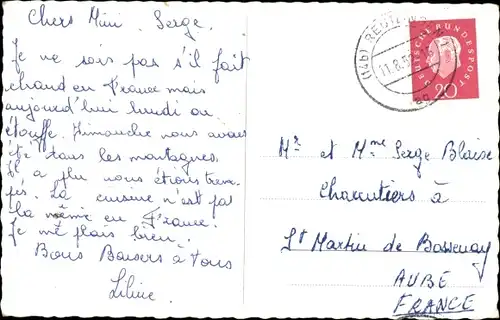 Chers Mimi. Serge.
Je ne sais pas s'il fait
chaud en France mais
aujourd'hui lundi on
étouffe. Dimanche nous avons
été dans les montagnes
il a plu nous étions trem-
pés. La cuisine n'est pas
la même en France.
Je me plais bien.
Bons Baisers à tous
Liline
DEUTSCHE BUNDESPOST
20
Mr et Mme Serge Blaise
Charcutiers à
St Martin de Bossenay
AUBE
FRANCE